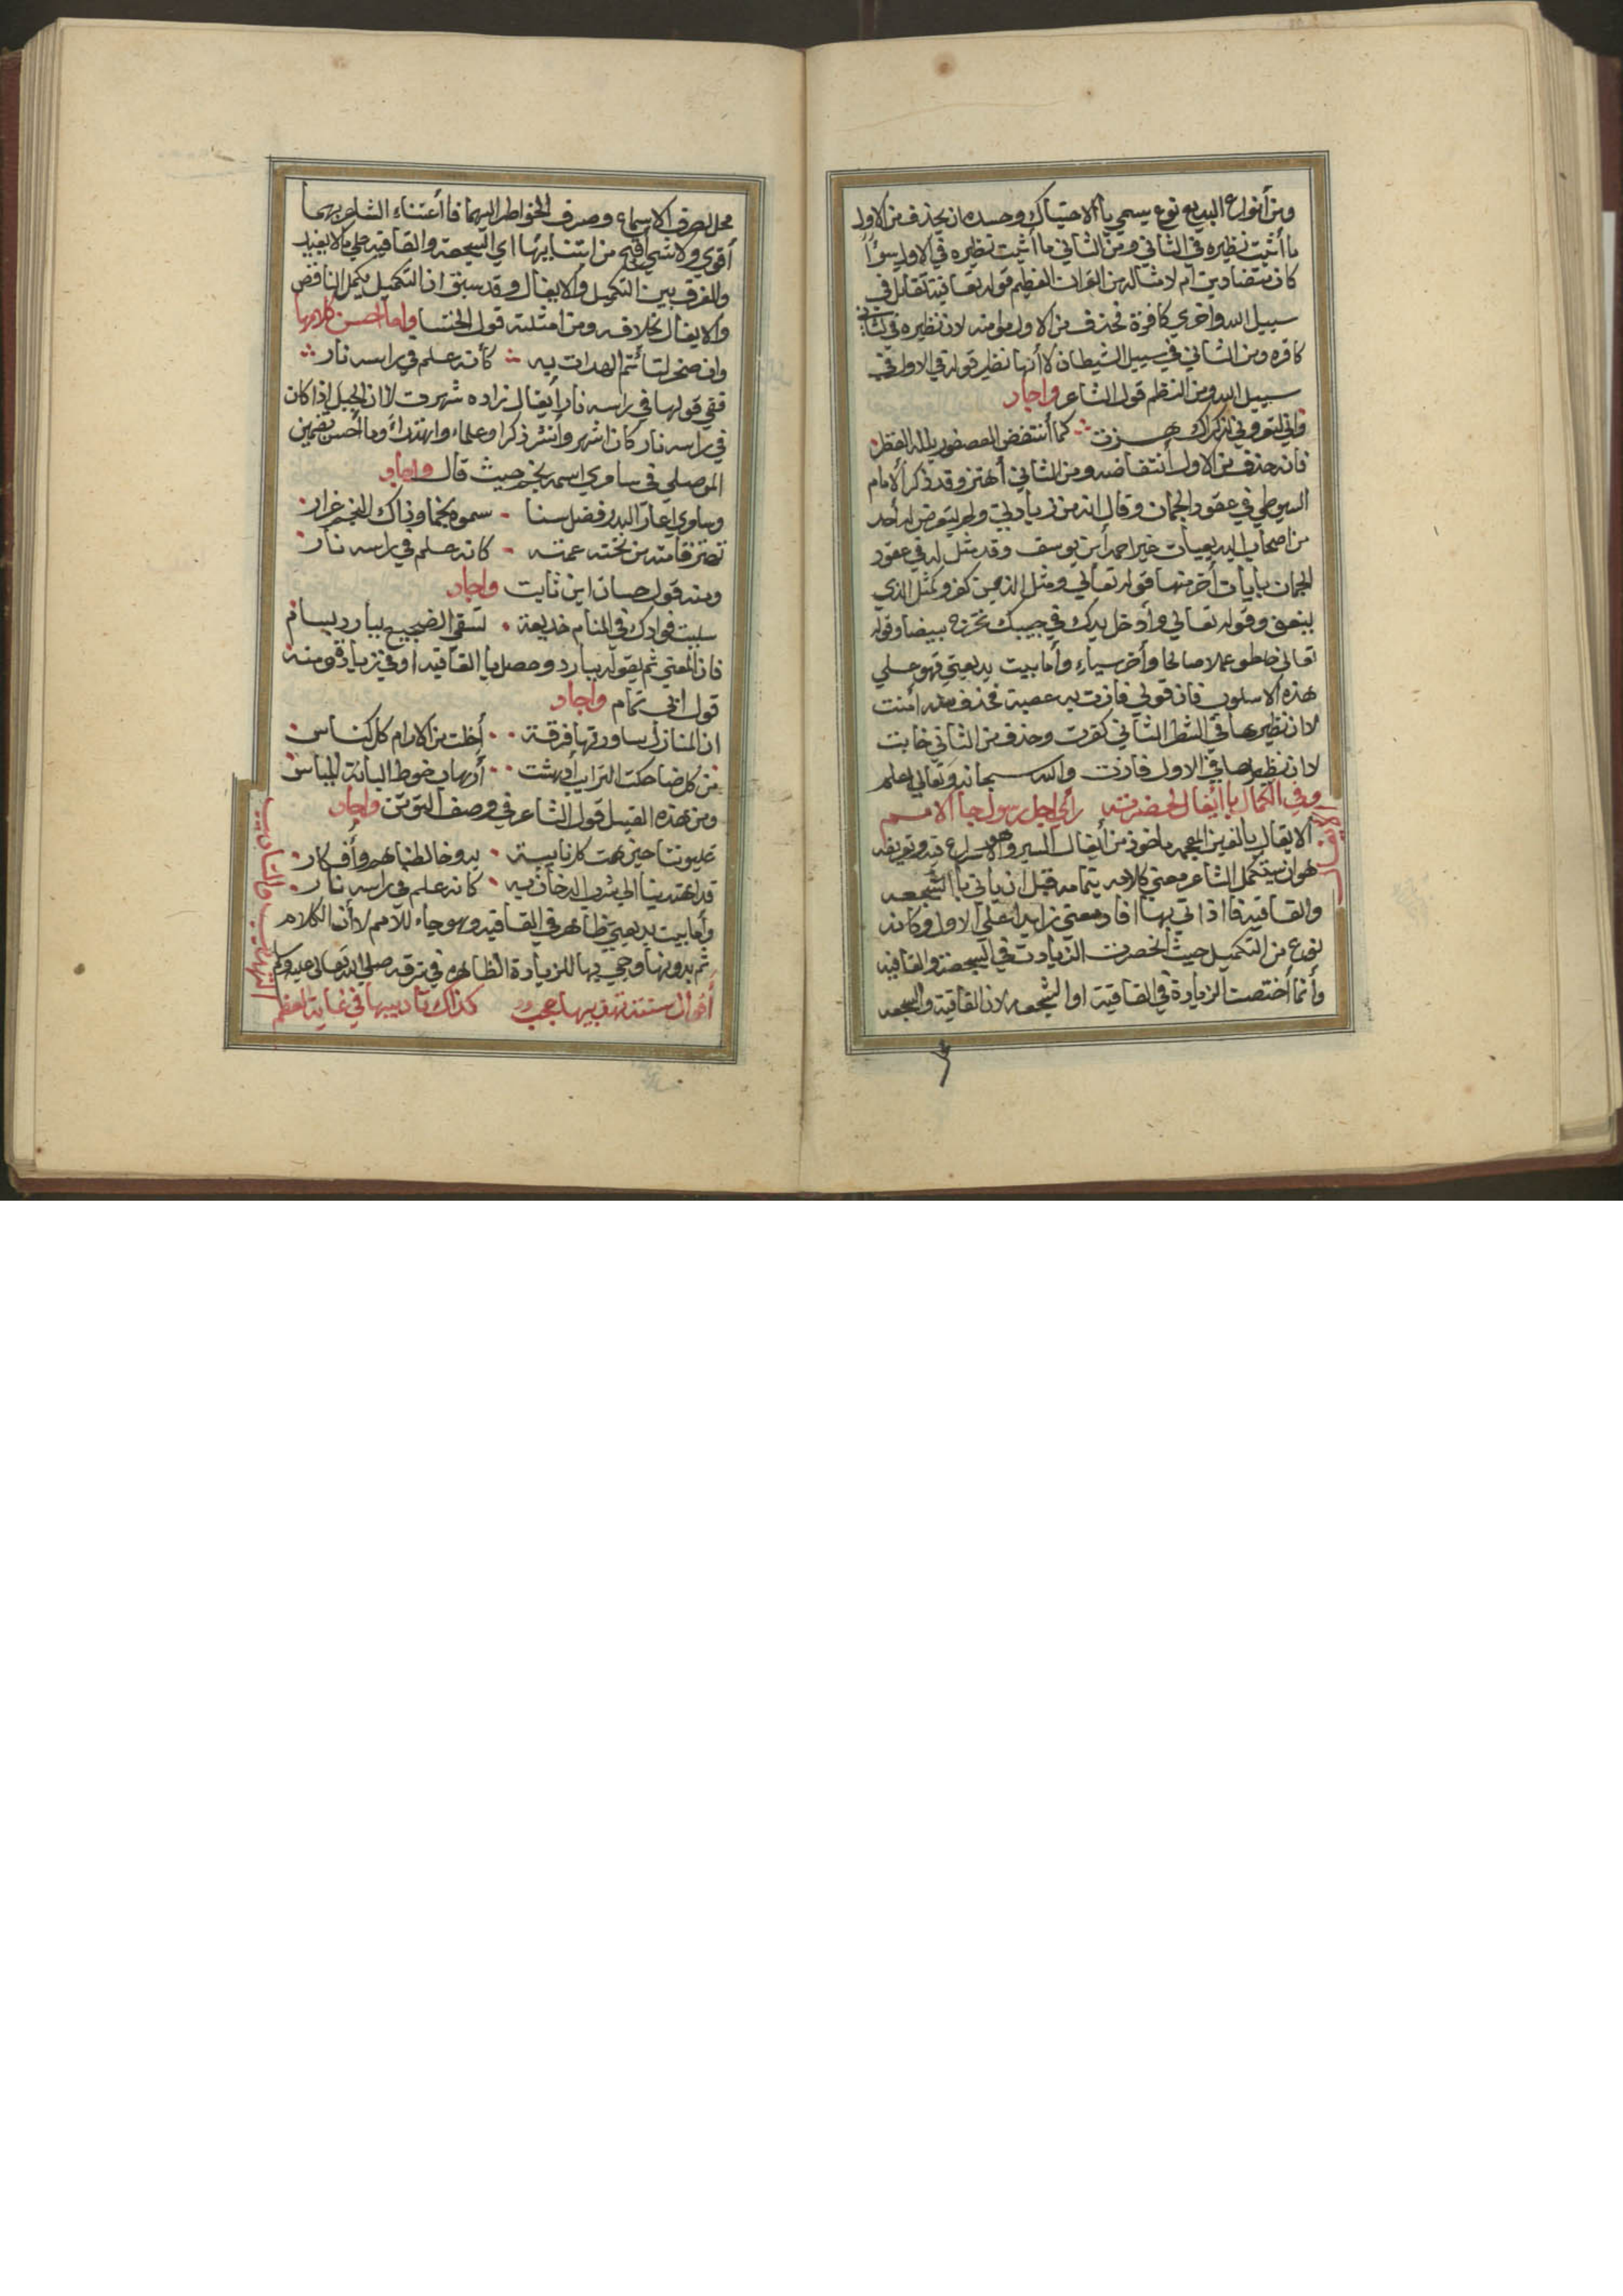 ومن أنواع البديع نوع يسمي باالاحتباك وحسده ان يحذف من الاول
ما أثبت نظيره في الثاني ومن الثاني ما أثبت نظيره في الاول سوأاً
كان متضادين ام لا مثاله من القران العظيم قوله تعا فية تقاتل في
سبيل الله واخري كافرة فحذف من الاول مومنه لان نظيره في الثاني
كافره ومن الثاني في سبيل الشيطان لاأنها نظير قوله في الاول في
سبيل الله ومن النظم قول الشاعر واجاد
واني لتعروني لذكراك هزت كما أنتفض العصفور بلله القطر
فانه حذف من الاول أنتفاضه ومن الثاني أهتز وقد ذكر الامام
السيوطي في عقود الجمان وقال انه من زيادتي ولم يتعرض له أحد
من اصحاب البديعيات غير احمد أبن يوسف وقد مثل له في عقود
الجمان بايات أخر منها قوله تعالي ومثل الذين كفرو كمثل الذي
ينعق وقوله تعالي وأدخل يدك في جيبك تخرج بيضا وقوله
تعالي خلطو عملا صالحا وأخر سياء وأما بيت بديعيتي فهو علي
هذه الاسلوب فان قولي فازت به عصبة فحذف منه أمنت
لان نظيرها في الشطر الثاني كفرت وحذف من الثاني خابت
لان نظيرها في الاول فازت والله سبحانه وتعالي اعلم
وفي الكمال باأيغال لحضرته رأي اجل رسول جا الامم
الايغال
الايغال بالغين المعجمه ماخوذ من أيغال السير وهو الاسراع فيه وتعريفه
هو ان يستكمل الشاعر معني كلامه بتمامه قبل ان ياتي باالسجعه
والقافيه فااذا اتي بها افاد معني زايدا علي الاول وكانه
نوع من التكميل حيث انحصرت الزيادت في السجعة والقافيه
وأنما أختصت الزيادة في القافية او السجعه لان القافية والسجعه
محل لصرف الاسماع وصرف الخواطر اليهما فاأعتناء الشاعر بهما
أقوي ولا شي أقبح من اتنايها اي السجعة والقافيه علي مالا يفيد
والفرق بين التكميل والايغال وقد سبق ان التكميل يكمل الناقص
والايغال بخلافه ومن امثلته قول الخنسا واما احسن كلامها
وان صخر لتأتم الهدات به كأنه علم في راسه نار
ففي قولها في راسه نار أيغال زاده شهرت لاان الجبل اذا كان
في راسه نار كان اشهر وأنشر ذكرا وعلماء واهتداءً وما أحسن تضمين
الموصلي في ساوي اسمه نجم حيث قال واجاد
وساوي اعار البدر فضل سنا سموه نجما وذاك النجم غرار
تهتز قامته من تحته عمته كانه علم في راسه نار
ومنه قول حسان ابن ثابت واجاد
سلبت فوادك في المنام خديعة تسقي الضجيع ببارد بسام
فان المعني تم بقوله ببارد وحصل باالقافيه اوفي زيادة ومنه
قول ابي تمام واجاد
ان المنازل ساورتها فرقة أخلت من الارام كل كناس
من كل ضاحكت التراب أدهشت أرهاب خوط البانة المياس
ومن هذه القبيل قول الشاعر في وصف التوتن واجاد
غليوننا حين همت كل نايبة به وخالطنا هم وأفكار
قد اهتدينا الي شرب الدخان به كانه علم في راسه نار
وأما بيت بديعيتي ظاهر في القافيه وهو جاء للامم لاأن الكلام
تم بدونها وجي بها للزيادة الظاهره في ترقه صلي الله تعالي عليه وسلم
التهذيب والتاديب
أقوال سنته تهذيبها عجب كذاك تاديبها في غاية العظم